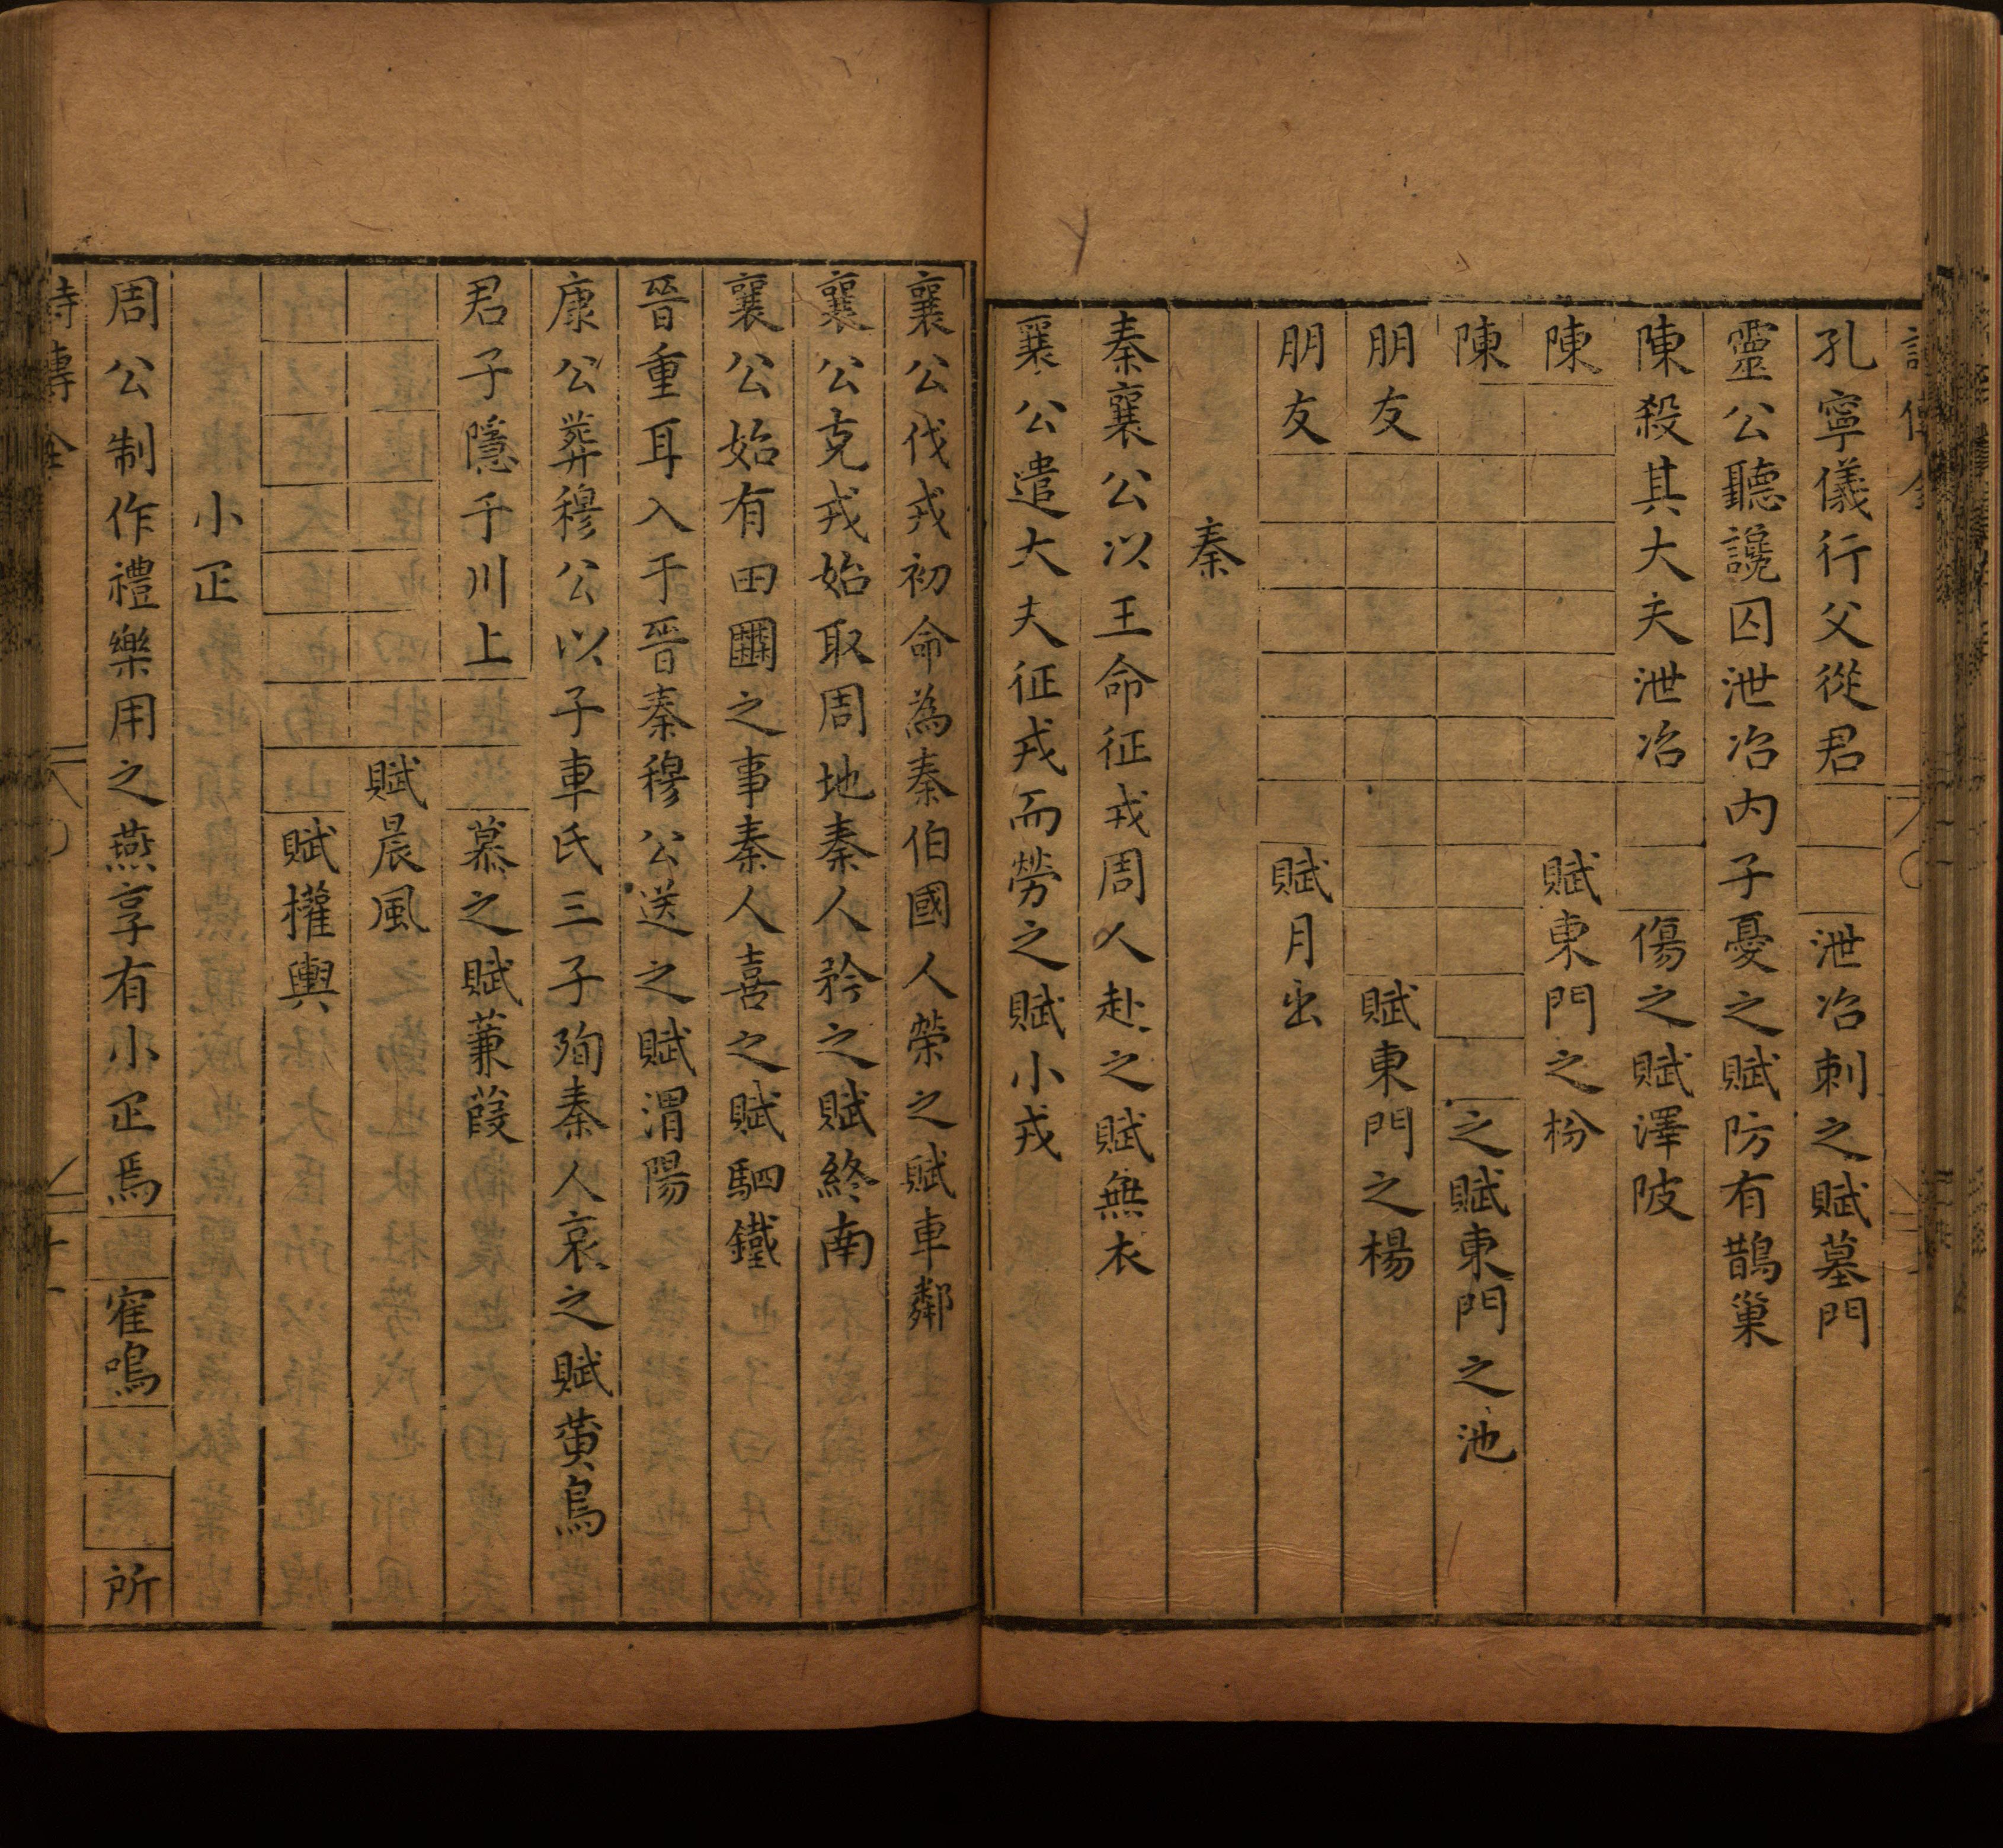 詩傳全
孔寧儀行父從君□□泄冶刺之賦墓門
靈公聽讒囚泄冶內子憂之賦防有鵲巢
陳殺其大夫泄冶□□傷之賦澤陂
陳□□□□□□□賦東門之枌
陳□□□□□□□□□□□之賦東門之池
朋友□□□□□□□□賦東門之楊
朋友□□□□□□賦月出
秦
秦襄公以王命征戎周人赴之賦無衣
襄公遣大夫征戎而勞之賦小戎
襄公伐戎初命為秦伯國人榮之賦車鄰
襄公克戎始取周地秦人矜之賦終南
襄公始有田囿之事秦人喜之賦駟鐵
晉重耳入于晉秦穆公送之賦渭陽
康公葬穆公以子車氏三子殉秦人哀之賦黃鳥
君子隱于川上□□慕之賦蒹葭
□□□□□□□賦晨風
□□□□□□□□賦權輿
小正
周公制作禮樂用之燕享有小正焉□寉鳴□□所
詩傳全